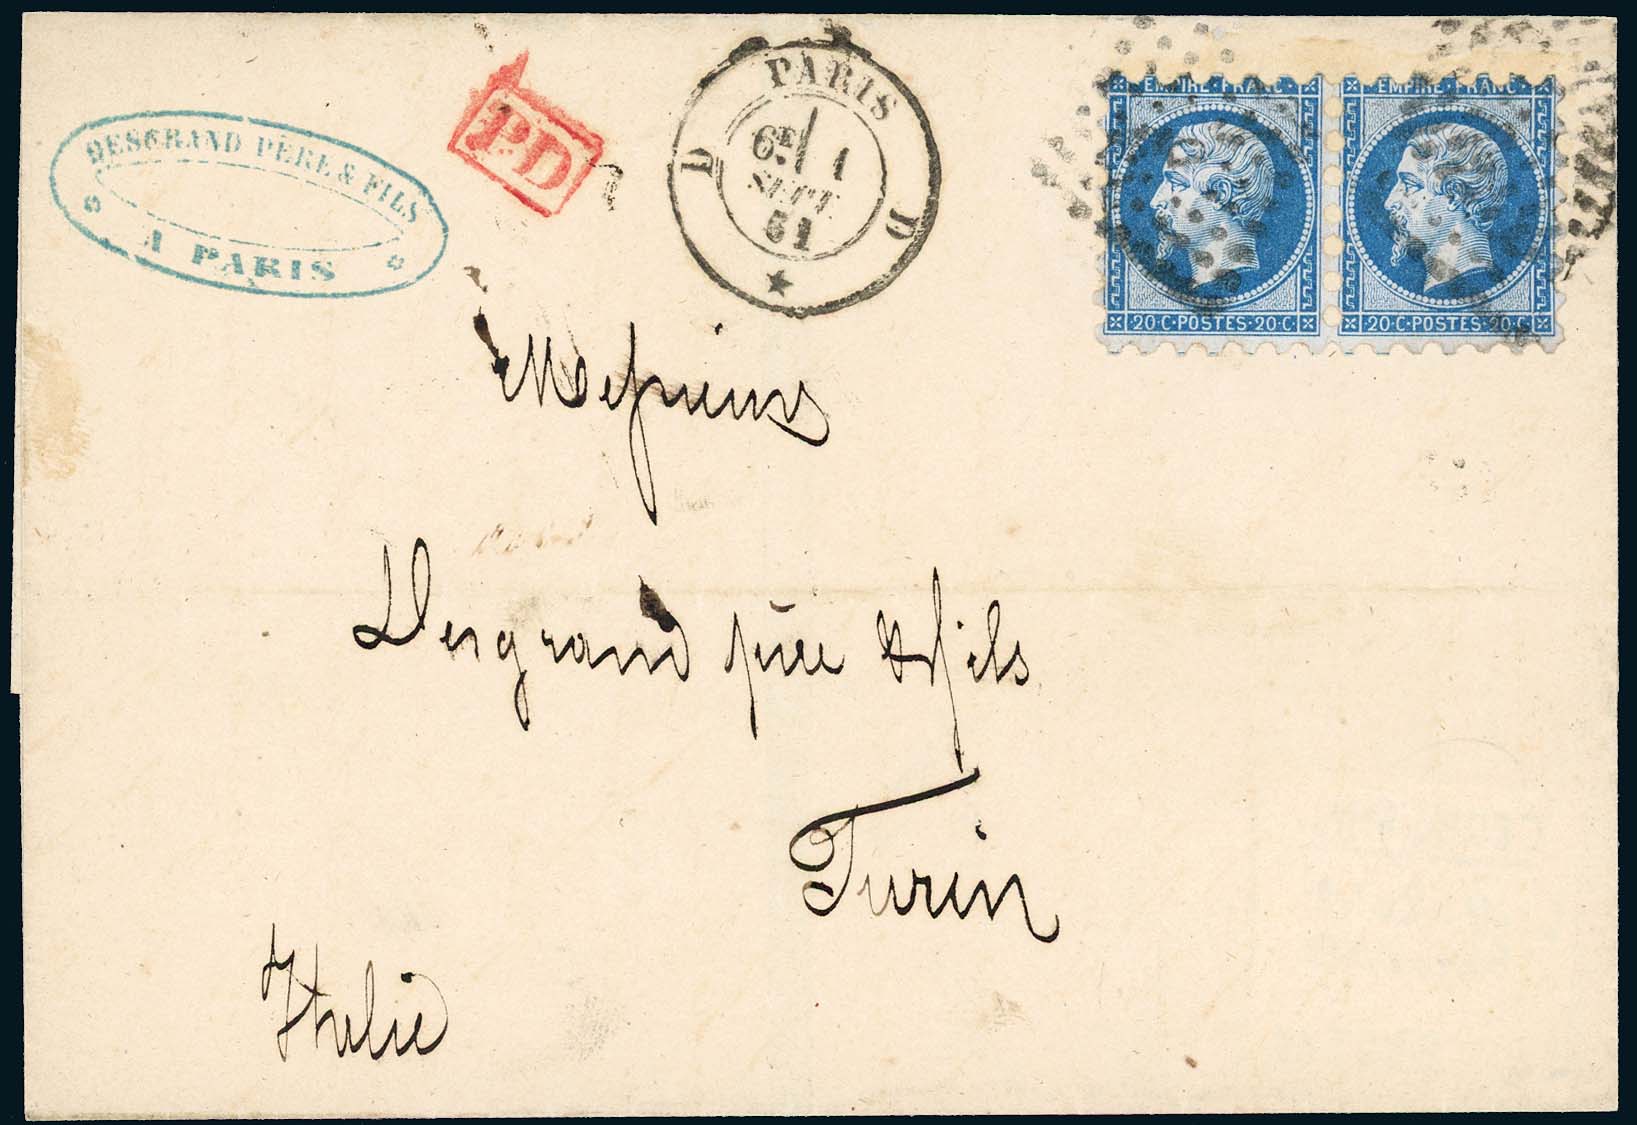 DESGRAND PÈRE & FILS
A PARIS
PD
PARIS
D D
6E 1
SEPT
61
EMPIRE · FRANC
20·C·POSTES·20·C
EMPIRE · FRANC
20·C·POSTES·20·C
Messieurs
Desgrand père & fils
Turin
Italie